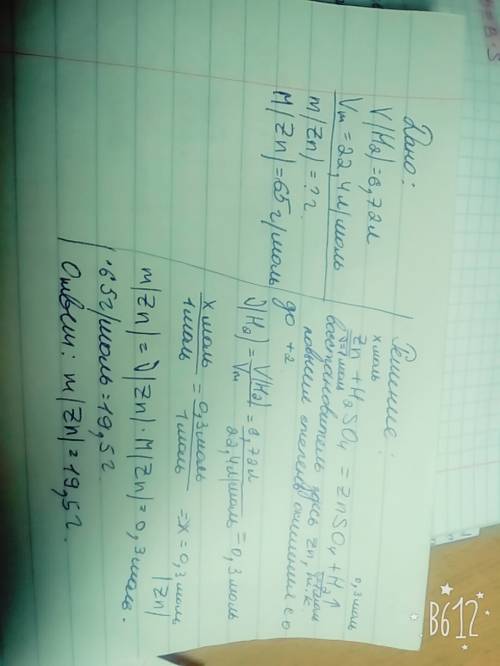 Дано:
V(H2)=6,72л
Vm=22,4л/моль
m(Zn)=?г.
M(Zn)=65г/моль
Решение:
x моль 0,3моль
Zn + H2SO4 = ZnSO4 + H2↑
ν=1моль ν=1моль
восстановитель здесь Zn, т.к.
повысил степень окисления с 0
до +2
ν(H2)=V(H2)/Vm=6,72л/22,4л/моль=0,3моль
x моль/1моль=0,3моль/1моль=x=0,3моль
(Zn)
m(Zn)=ν(Zn)·M(Zn)=0,3моль·
·65г/моль=19,5г.
Ответ: m(Zn)=19,5г.
B612